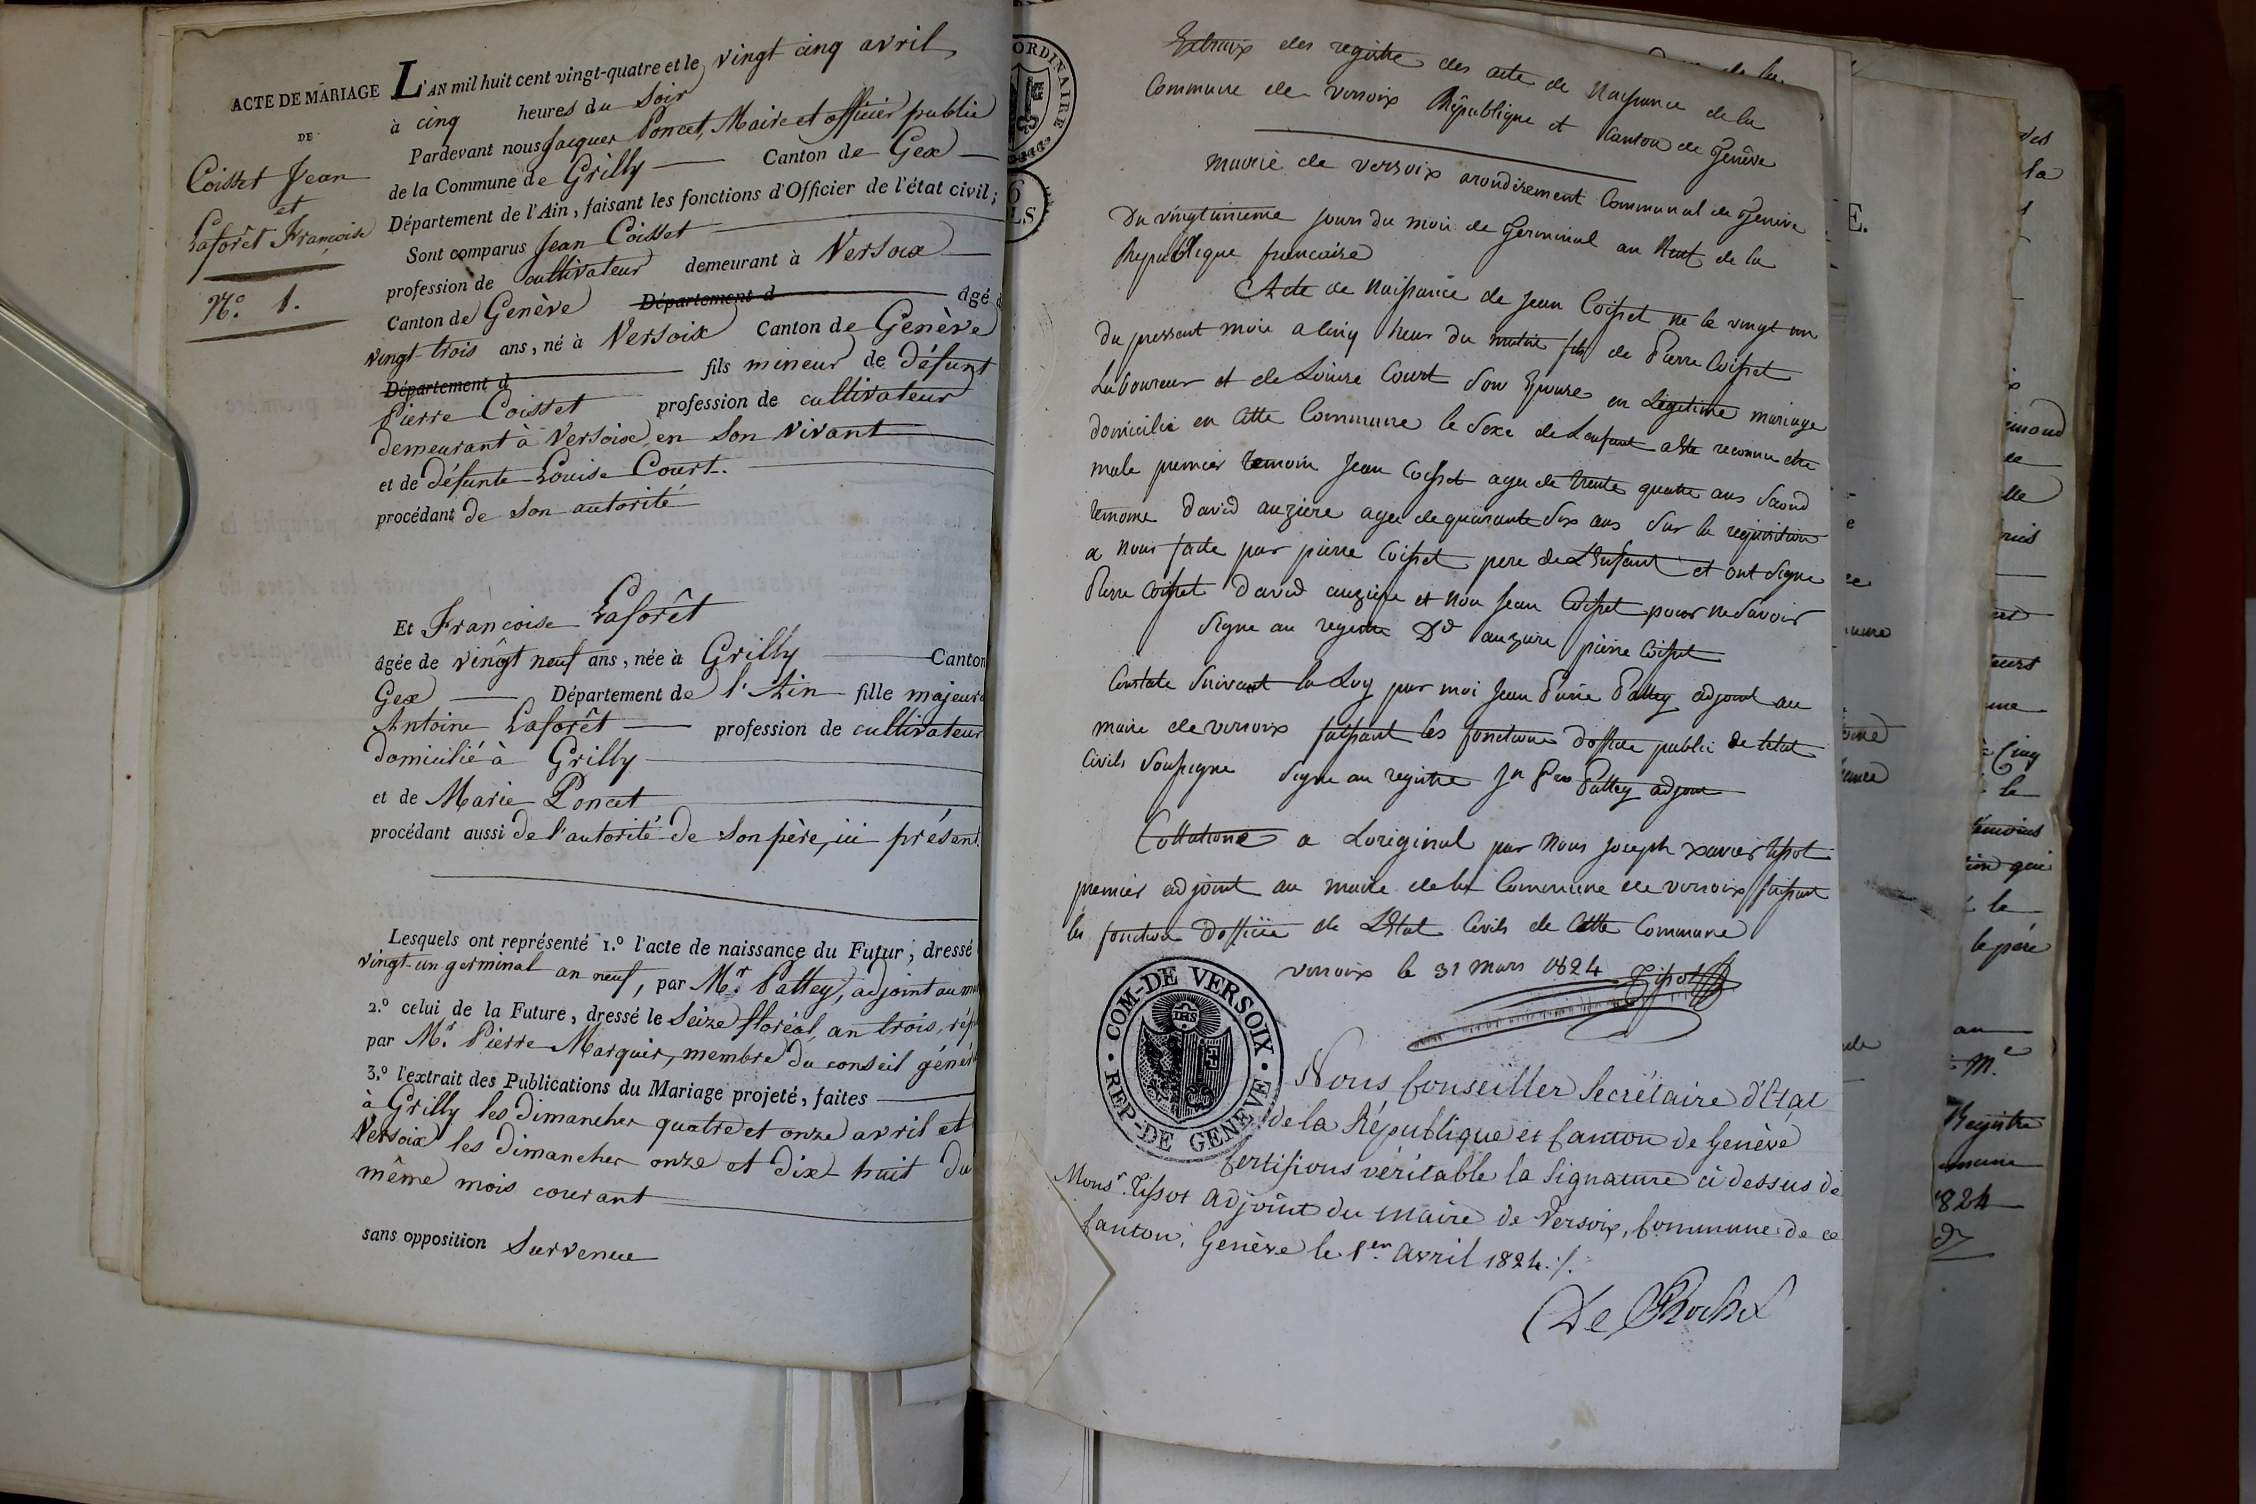 ACTE DE MARIAGE
DE
Coisset Jean
et
Laforêt Françoise
N.º 1.
L'AN mil huit cent vingt-quatre et le vingt cinq avril,
à cinq heures du Soir
Pardevant nous Jacques Poncet, Maire et officier public
de la Commune de Grilly Canton de Gex
Département de l'Ain, faisant les fonctions d'Officier de l'état civil;
Sont comparus Jean Coisset
profession de cultivateur demeurant à Versoix
Canton de Genève Département d âgé d
vingt trois ans, né à Versoix Canton de Genève
Département d fils mineur de défunt
Pierre Coisset profession de cultivateur
demeurant à Versoix, en son vivant
et de défunte Louise Court.
procédant de son autorité
Et Françoise Laforêt
âgée de vingt neuf ans, née à Grilly Canton
Gex Département de l'Ain fille majeure
Antoine Laforêt profession de cultivateur
domicilié à Grilly
et de Marie Poncet
procédant aussi de l'autorité de son père, ici présent.
Lesquels ont représenté 1.º l'acte de naissance du Futur, dressé
vingt-un germinal an neuf, par Mr. Pattey, adjoint au m
2.º celui de la Future, dressé le Seize floréal, an trois, rép
par Mr. Pierre Marquis, membre du conseil génér
3.º l'extrait des Publications du Mariage projeté, faites
à Grilly les dimanches quatre et onze avril et
Versoix les dimanches onze et dix-huit du
même mois courant
sans opposition Survenue
ORDINAIRE
Extraix des registre des acte de Naissance de la
Commune de versoix République et Canton de Genêve
mairie de versoix arondisement Communal de Geneve
Du vingtunieme jours du mois de Germinal an Neuf de la
Republique francaise
Acte de Naissance de Jean Coisset ne le vingt un
du pressent mois a cinq heur du matin fils de Pierre Coisset
Laboureur et de Louise Court Son Epouse en Legitime mariage
domicilie en Cette Commune le Sexe de Lenfant a ete reconnu etre
male premier temoin Jean Coisset agee de trente quatre ans Second
temoine David auziere agee de quarante Six ans Sur la requisition
a Nous faite par pierre Coisset pere de L'Enfant et ont Signe
Pierre Coisset David auziere et non Jean Coisset pour ne Savoir
Signe au registre Dd auziere pierre Coisset
Constate Suivant la Loy par moi Jean Pierre Pattey adjoint au
maire de versoix faissant les fonctions d'officie public de letat
Civils Soussigne Signe au registre Jn Pre Pattey adjoint
Collatione a Loriginal par Nous Joseph xavier Tissot
premier adjoint au maire de la Commune de versoix faissant
les fonction dofficie de L'Etat Civils de Cette Commune
versoix le 31 mars 1824 Tissot
COM-DE VERSOIX
REP-DE GENEVE
Nous Conseiller Secrétaire d'Etat
de la République et Canton de Genève
Certifions véritable la Signature ci dessus de
Monsr. Tissot adjoint du maire de Versoix, Commune de ce
Canton. Genève le 1er avril 1824 ./.